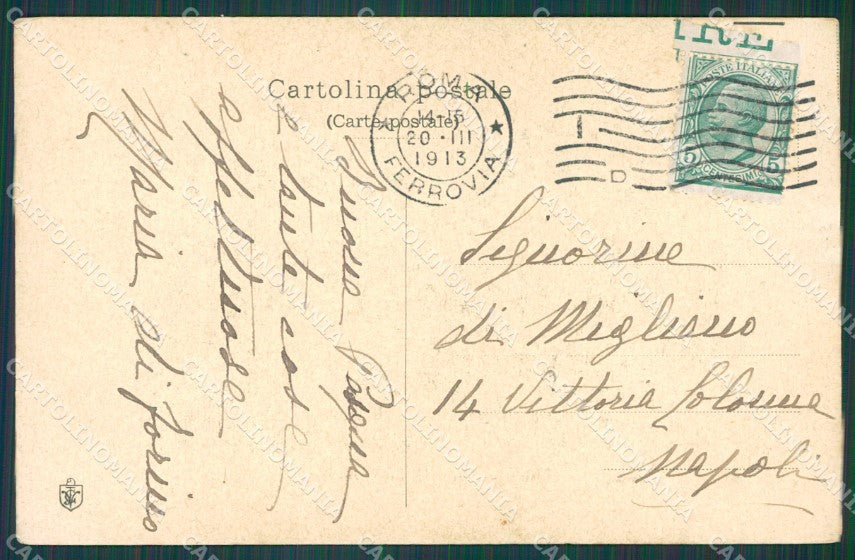 TRE
Cartolina Postale
(Carte postale)
ROMA
14-15
20 · III
1913
FERROVIA
POSTE ITALIANE
5 5
CENTESIMI
D
Buona Pasqua
e tante cose
affettuose
Maria di Forino
Signorine
di Migliano
14 Vittoria Colonna
Napoli
CARTOLINOMANIA